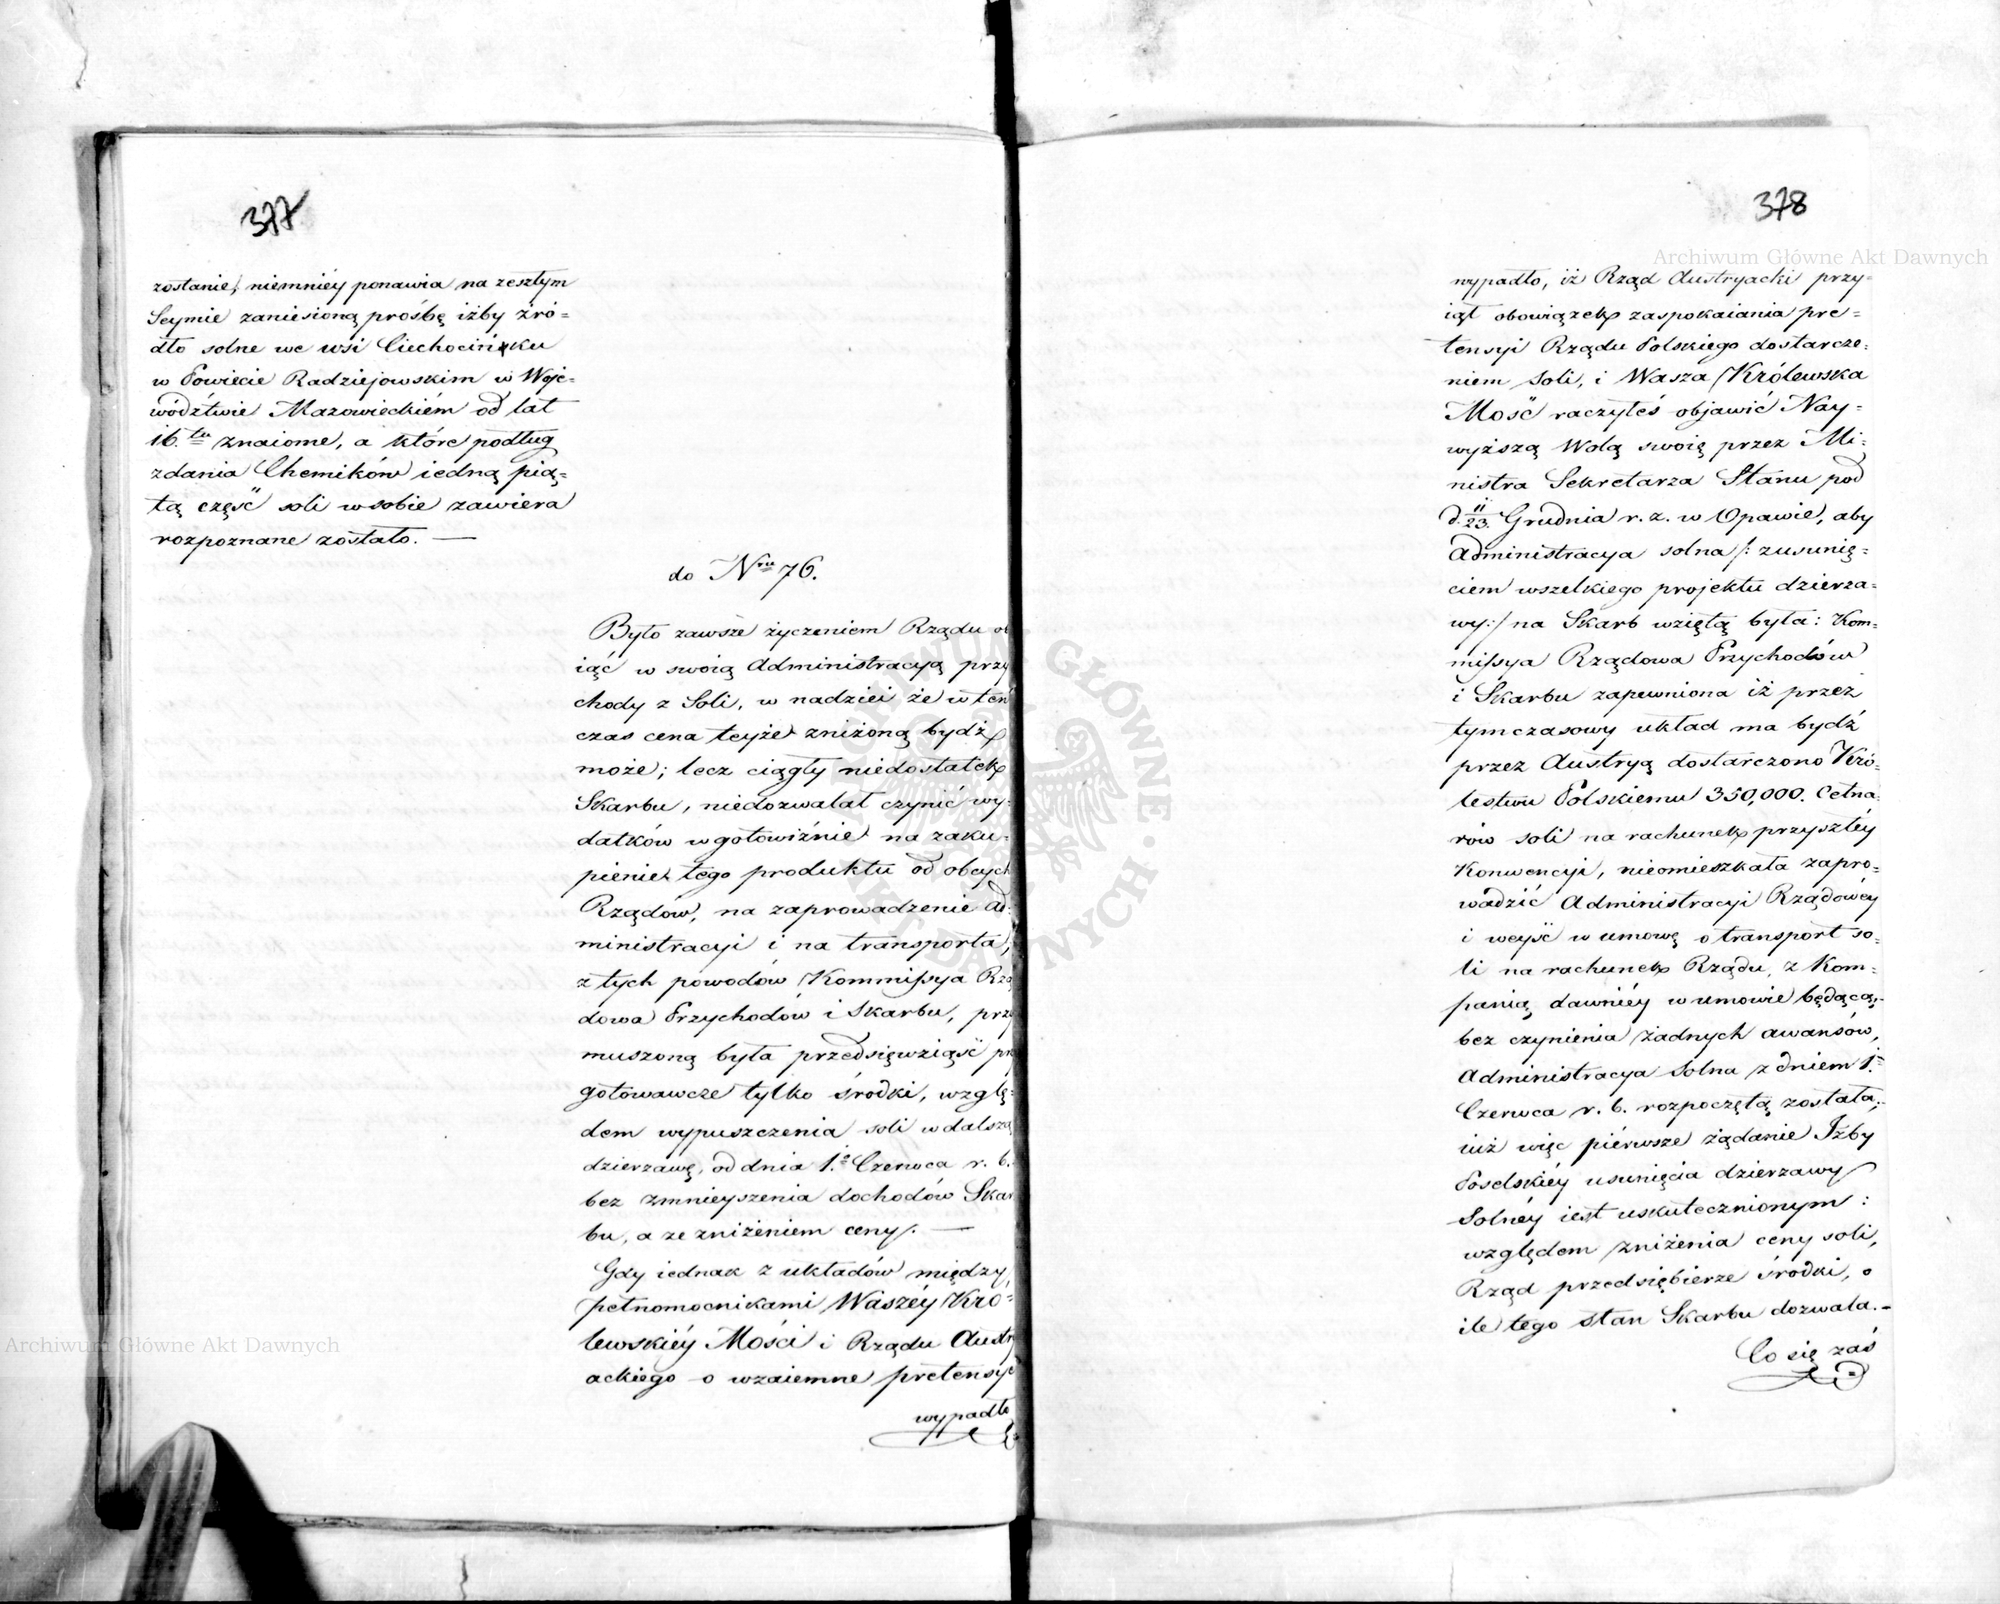 377
zostanie, niemniéy ponawia na zeszłym
Seymie zaniesioną prośbę iżby źró=
dło solne we wsi Ciechocińku
w Powiecie Radziejowskim w Woje=
wództwie Mazowieckiém od lat
16.tu znaiome, a które podług
zdania Chemików iedną pią=
tą część soli w sobie zawiera
rozpoznane zostało. —
do Nru 76.
Było zawsze życzeniem Rządu ob
iąć w swoią Administracyą przy
chody z Soli, w nadziei że w ten
czas cena teyże zniżoną bydź
może; lecz ciągły niedostatek
Skarbu, niedozwalał czynić wy=
datków w gotowiźnie na zaku=
pienie tego produktu od obcych
Rządów, na zaprowadzenie Ad=
ministracyi i na transporta,
z tych powodów Kommissya Rzą
dowa Przychodów i Skarbu, przy
muszoną była przedsięwziąść przy
gotowawcze tylko środki, wzglę=
dem wypuszczenia soli w dalszą
dzierzawę, od dnia 1.o Czerwca r. b.
bez zmnieyszenia dochodów Skar
bu, a ze zniżeniem ceny. —
Gdy iednak z układów między
pełnomocnikami Waszéy Kró=
lewskiéy Mości i Rządu Austry
ackiego o wzaiemne pretensye
wypadło
378
wypadło, iż Rząd Austryacki przy=
iął obowiązek zaspokaiania pre=
tensyi Rządu Polskiego dostarcze=
niem Soli, i Wasza Królewska
Mość raczyłeś objawić Nay=
wyższą Wolą swoię przez Mi=
nistra Sekretarza Stanu pod
d. 11/23. Grudnia r. z. w Opawie, aby
Administracya solna /: z usunię=
ciem wszelkiego projektu dzierza=
wy :/ na Skarb wziętą była: Kom=
missya Rządowa Przychodów
i Skarbu zapewniona iż przez
tymczasowy układ ma bydź
przez Austryą dostarczono Kró=
lestwu Polskiemu 350,000. Cetna=
rów soli na rachunek przyszłéy
Konwencyi, nieomieszkała zapro=
wadzić Administracyi Rządowéy
i weyść w umowę o transport so=
li na rachunek Rządu, z Kom=
panią dawniéy w umowie będącą,
bez czynienia żadnych awansów,
Administracya Solna z dniem 1.
Czerwca r. b. rozpoczętą została;
iuż więc piérwsze żądanie Izby
Poselskiéy usunięcia dzierzawy
Solnéy iest uskutecznionym:
względem zniżenia ceny soli,
Rząd przedsiębierze środki, o
ile tego stan Skarbu dozwala. —
Co się zaś
Archiwum Główne Akt Dawnych
Archiwum Główne Akt Dawnych
ARCHIWUM GŁÓWNE AKT DAWNYCH